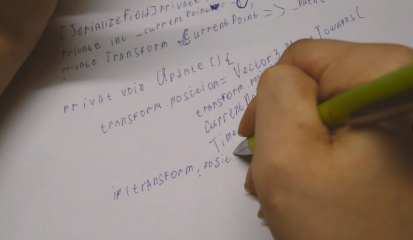 [SerializeField] private
private int _currentPoint =
private Transform CurrentPoint =>
privat void Update(){
transform.posicion = Vector3. Towards(
transform.
current
Time
if(transform.posit